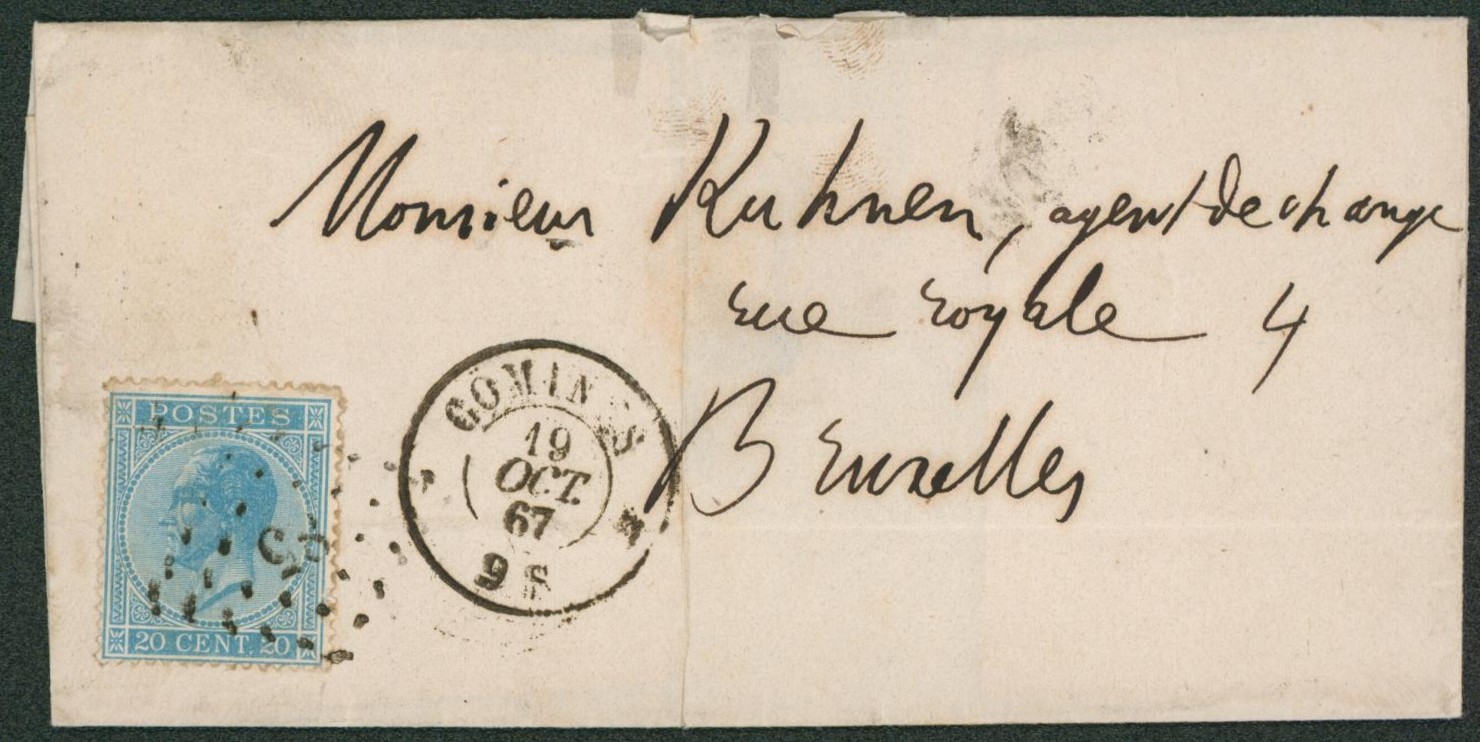 Monsieur Kuhnen, agent de change
rue royale 4
Bruxelles
COMINES
19
OCT
67
9 S
POSTES
20 CENT. 20